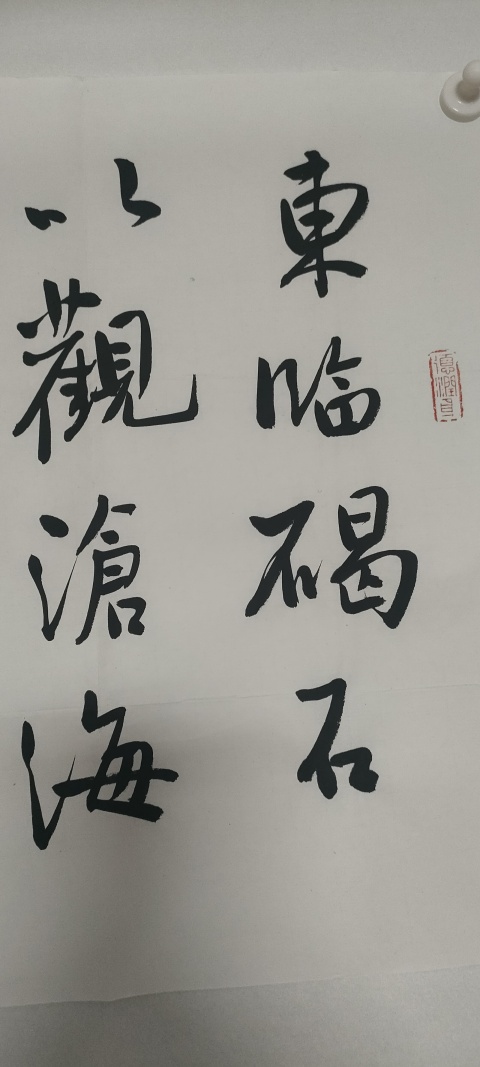 東临碣石
以觀滄海